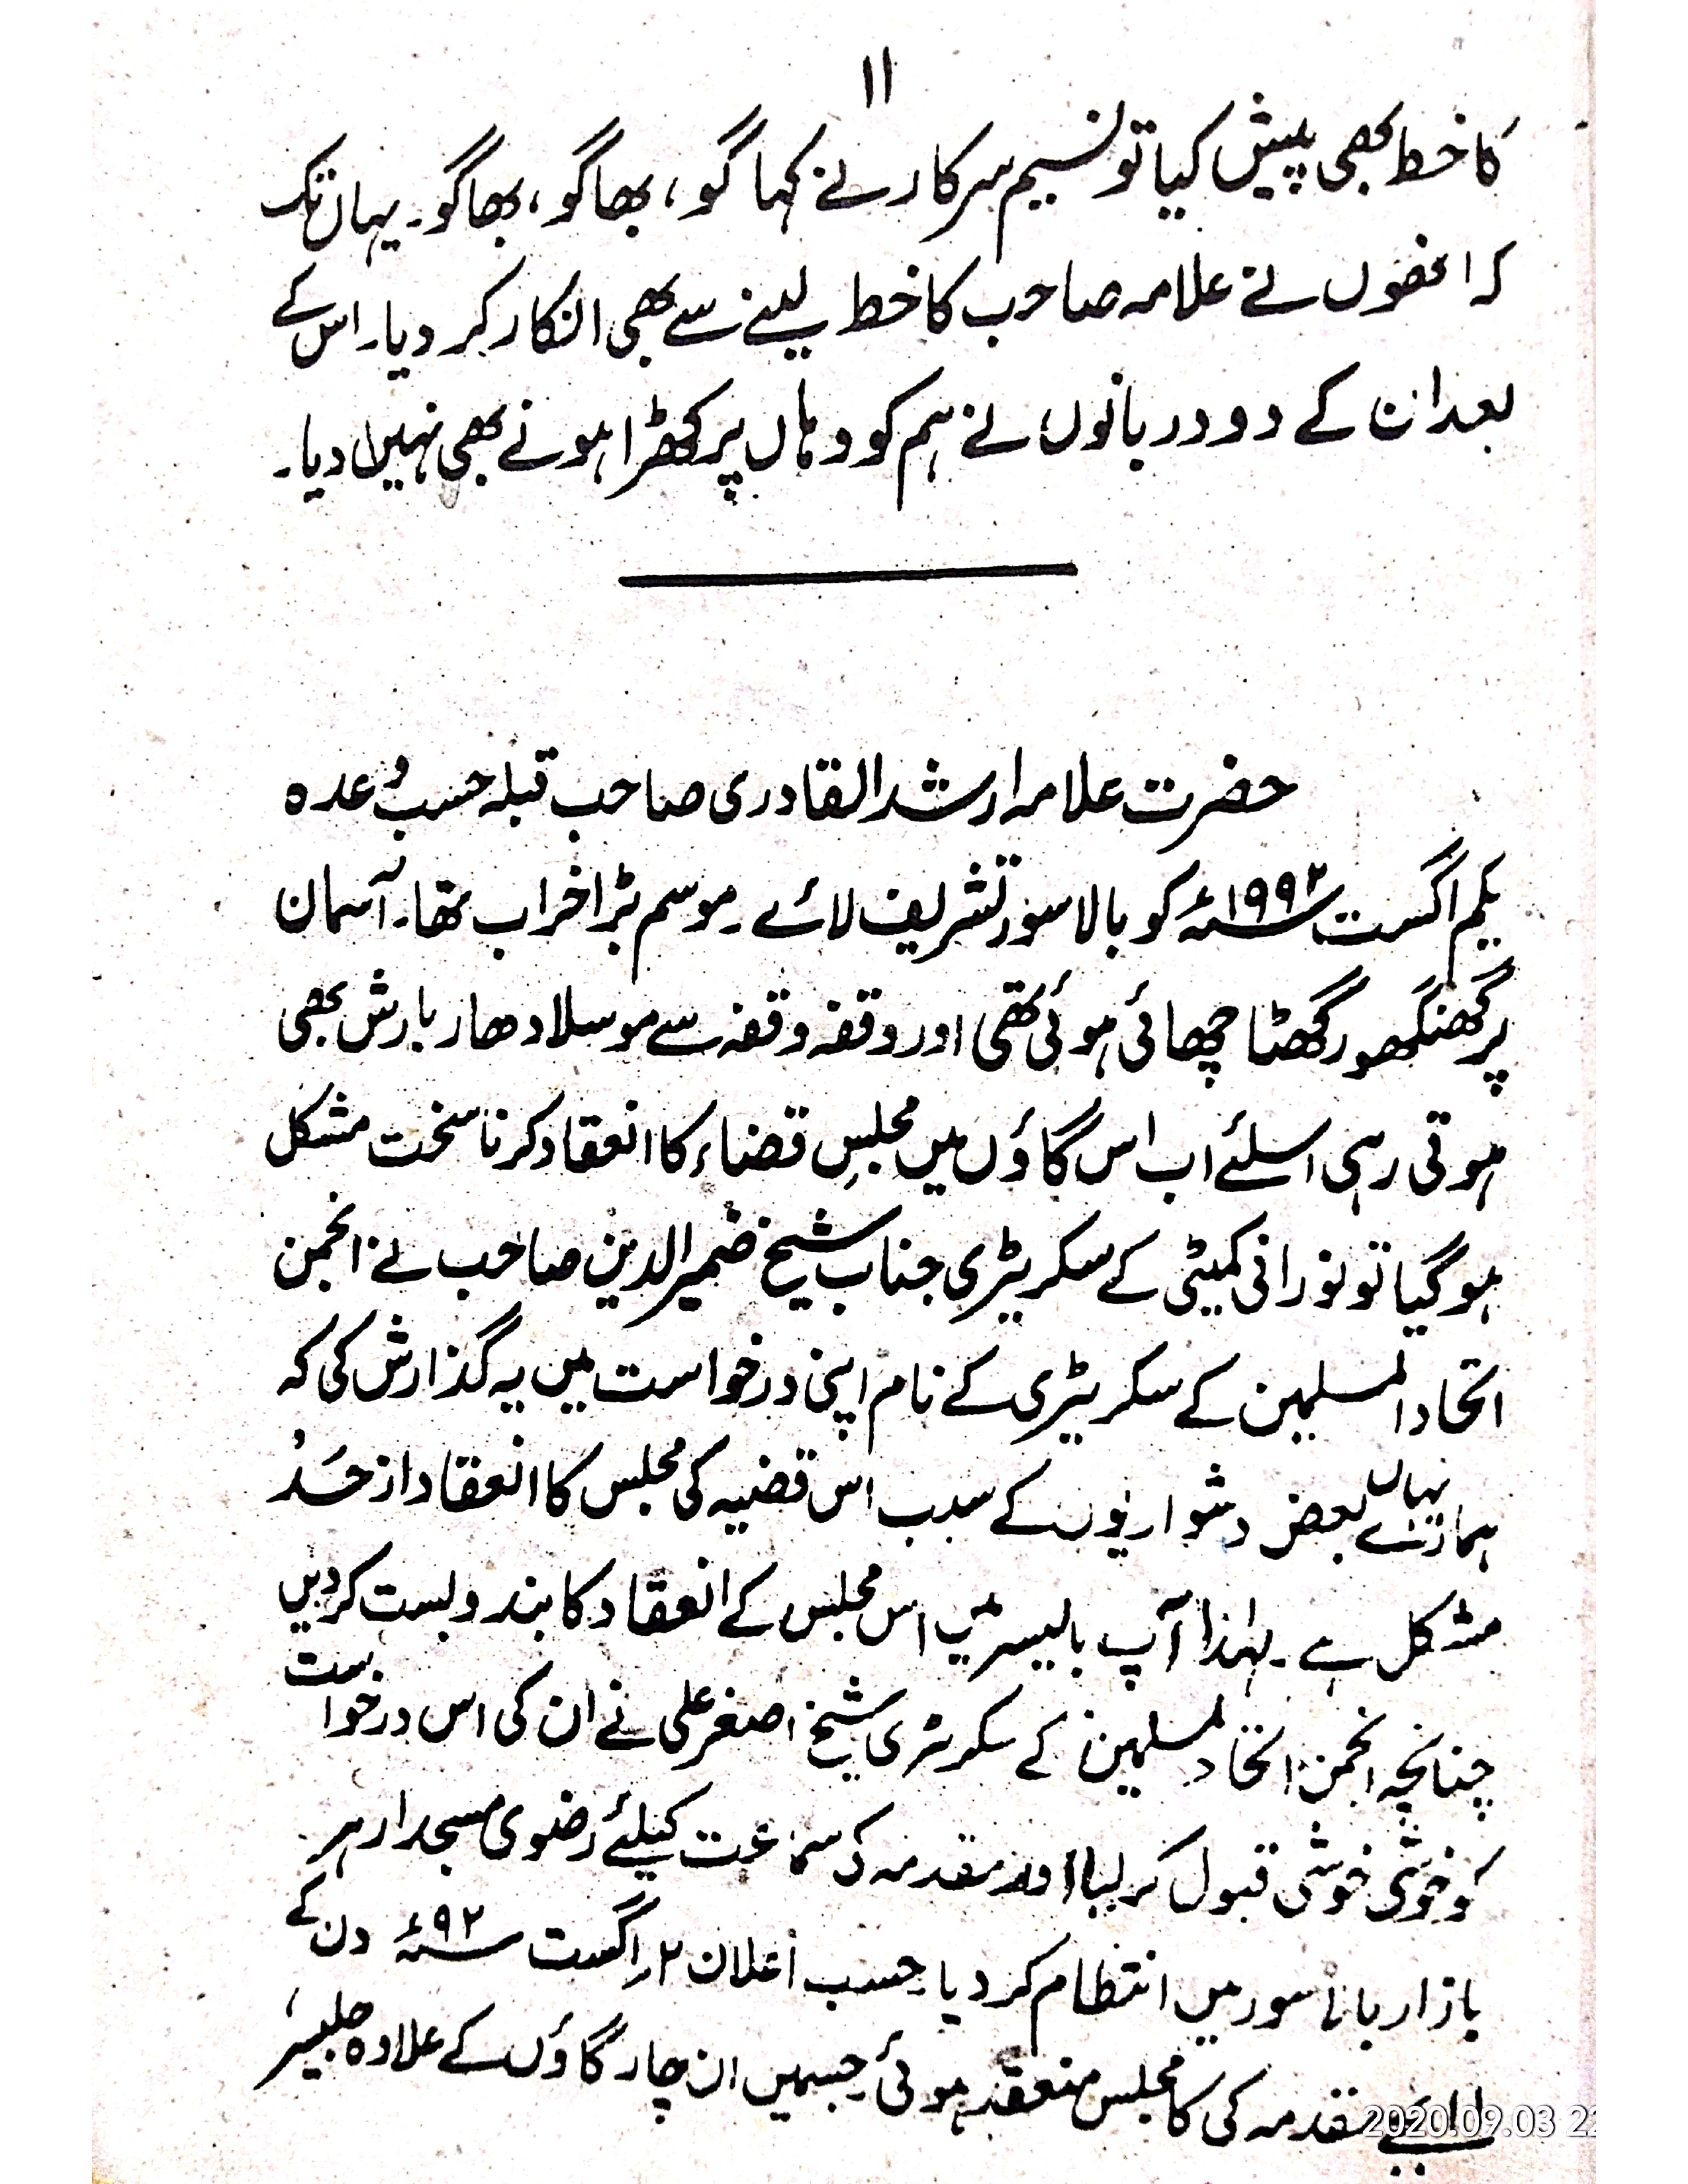 ۱۱
کا خط بھی پیش کیا تو نسیم سرکار نے کہا گو، بھاگو، بھاگو۔ یہاں تک
کہ انھوں نے علامہ صاحب کا خط لینے سے بھی انکار کر دیا۔ اس کے
بعد ان کے دو دربانوں نے ہم کو وہاں پر کھڑا ہونے بھی نہیں دیا۔
حضرت علامہ ارشد القادری صاحب قبلہ حسب وعدہ
یکم اگست ۱۹۹۲ء کو بالاسور تشریف لائے۔ موسم بڑا خراب تھا۔ آسمان
پر گھنگھور گھٹا چھائی ہوئی تھی اور وقفہ وقفہ سے موسلادھار بارش بھی
ہوتی رہی اسلئے اب اس گاؤں میں مجلسِ قضاء کا انعقاد کرنا سخت مشکل
ہو گیا تو نورانی کمیٹی کے سکریٹری جناب شیخ ضمیر الدین صاحب نے انجمن
اتحاد المسلمین کے سکریٹری کے نام اپنی درخواست میں یہ گذارش کی کہ
ہمارے یہاں بعض دشواریوں کے سبب اس قضیہ کی مجلس کا انعقاد از حَدْ
مشکل ہے۔ لہٰذا آپ بالیسر میں اس مجلس کے انعقاد کا بندوبست کردیں
چنانچہ انجمن اتحاد لمسلمین کے سکریٹری شیخ اصغر علی نے ان کی اس درخواست
کو خوشی خوشی قبول کر لیا اور مقدمہ کی سماعت کیلئے رضوی مسجد ارہر
بازار بالاسور میں انتظام کر دیا۔ حسب اعلان ۲؍اگست ۹۲ء دن کے
۱۱ بجے مقدمہ کی کا مجلس منعقد ہوئی۔ جسمیں ان چار گاؤں کے علاوہ جلیسر،
2020.09.03 22